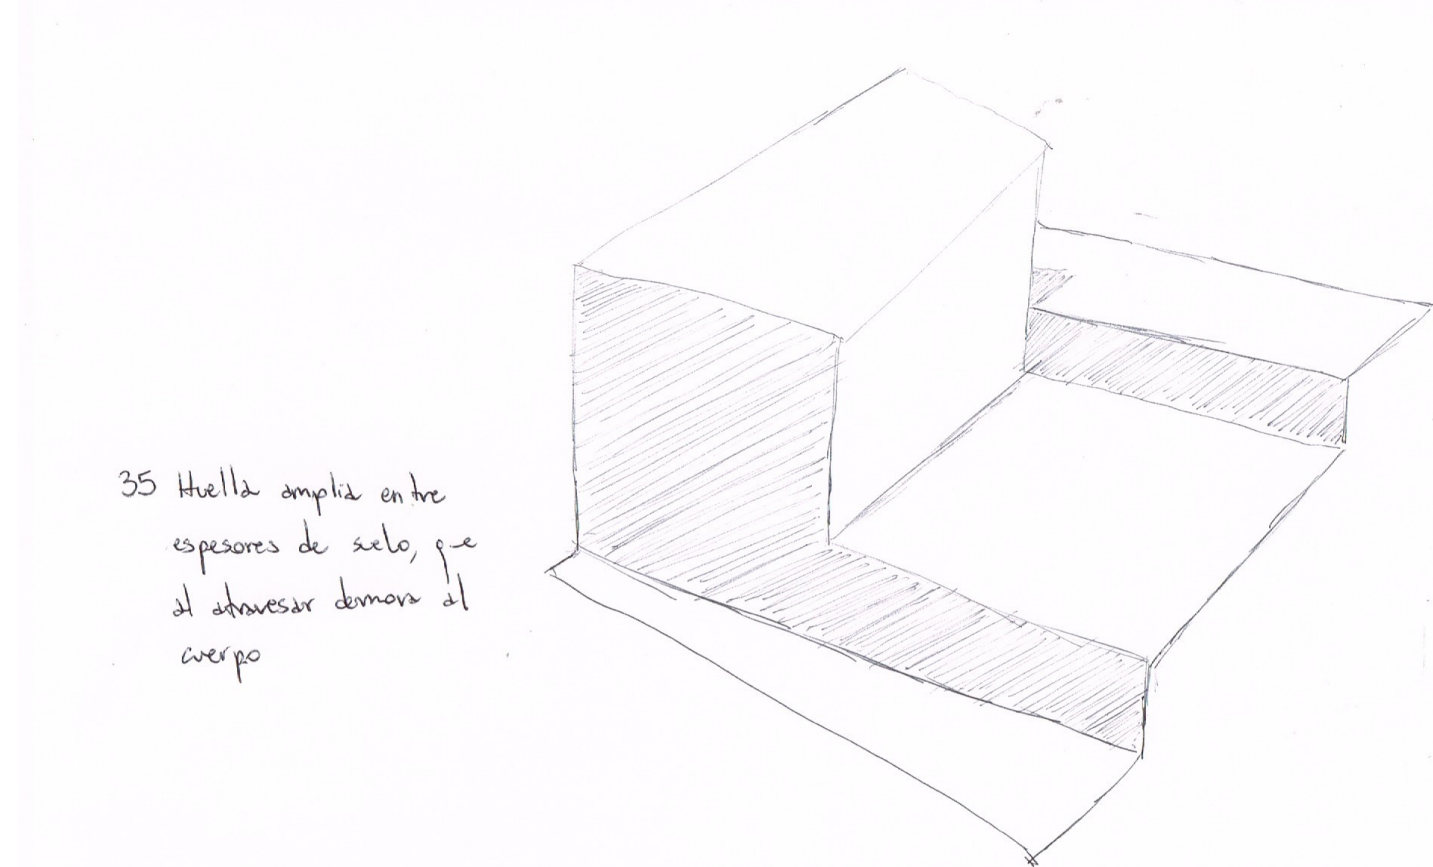 35 Huella amplia entre
espesores de suelo, que
al atravesar demora al
cuerpo